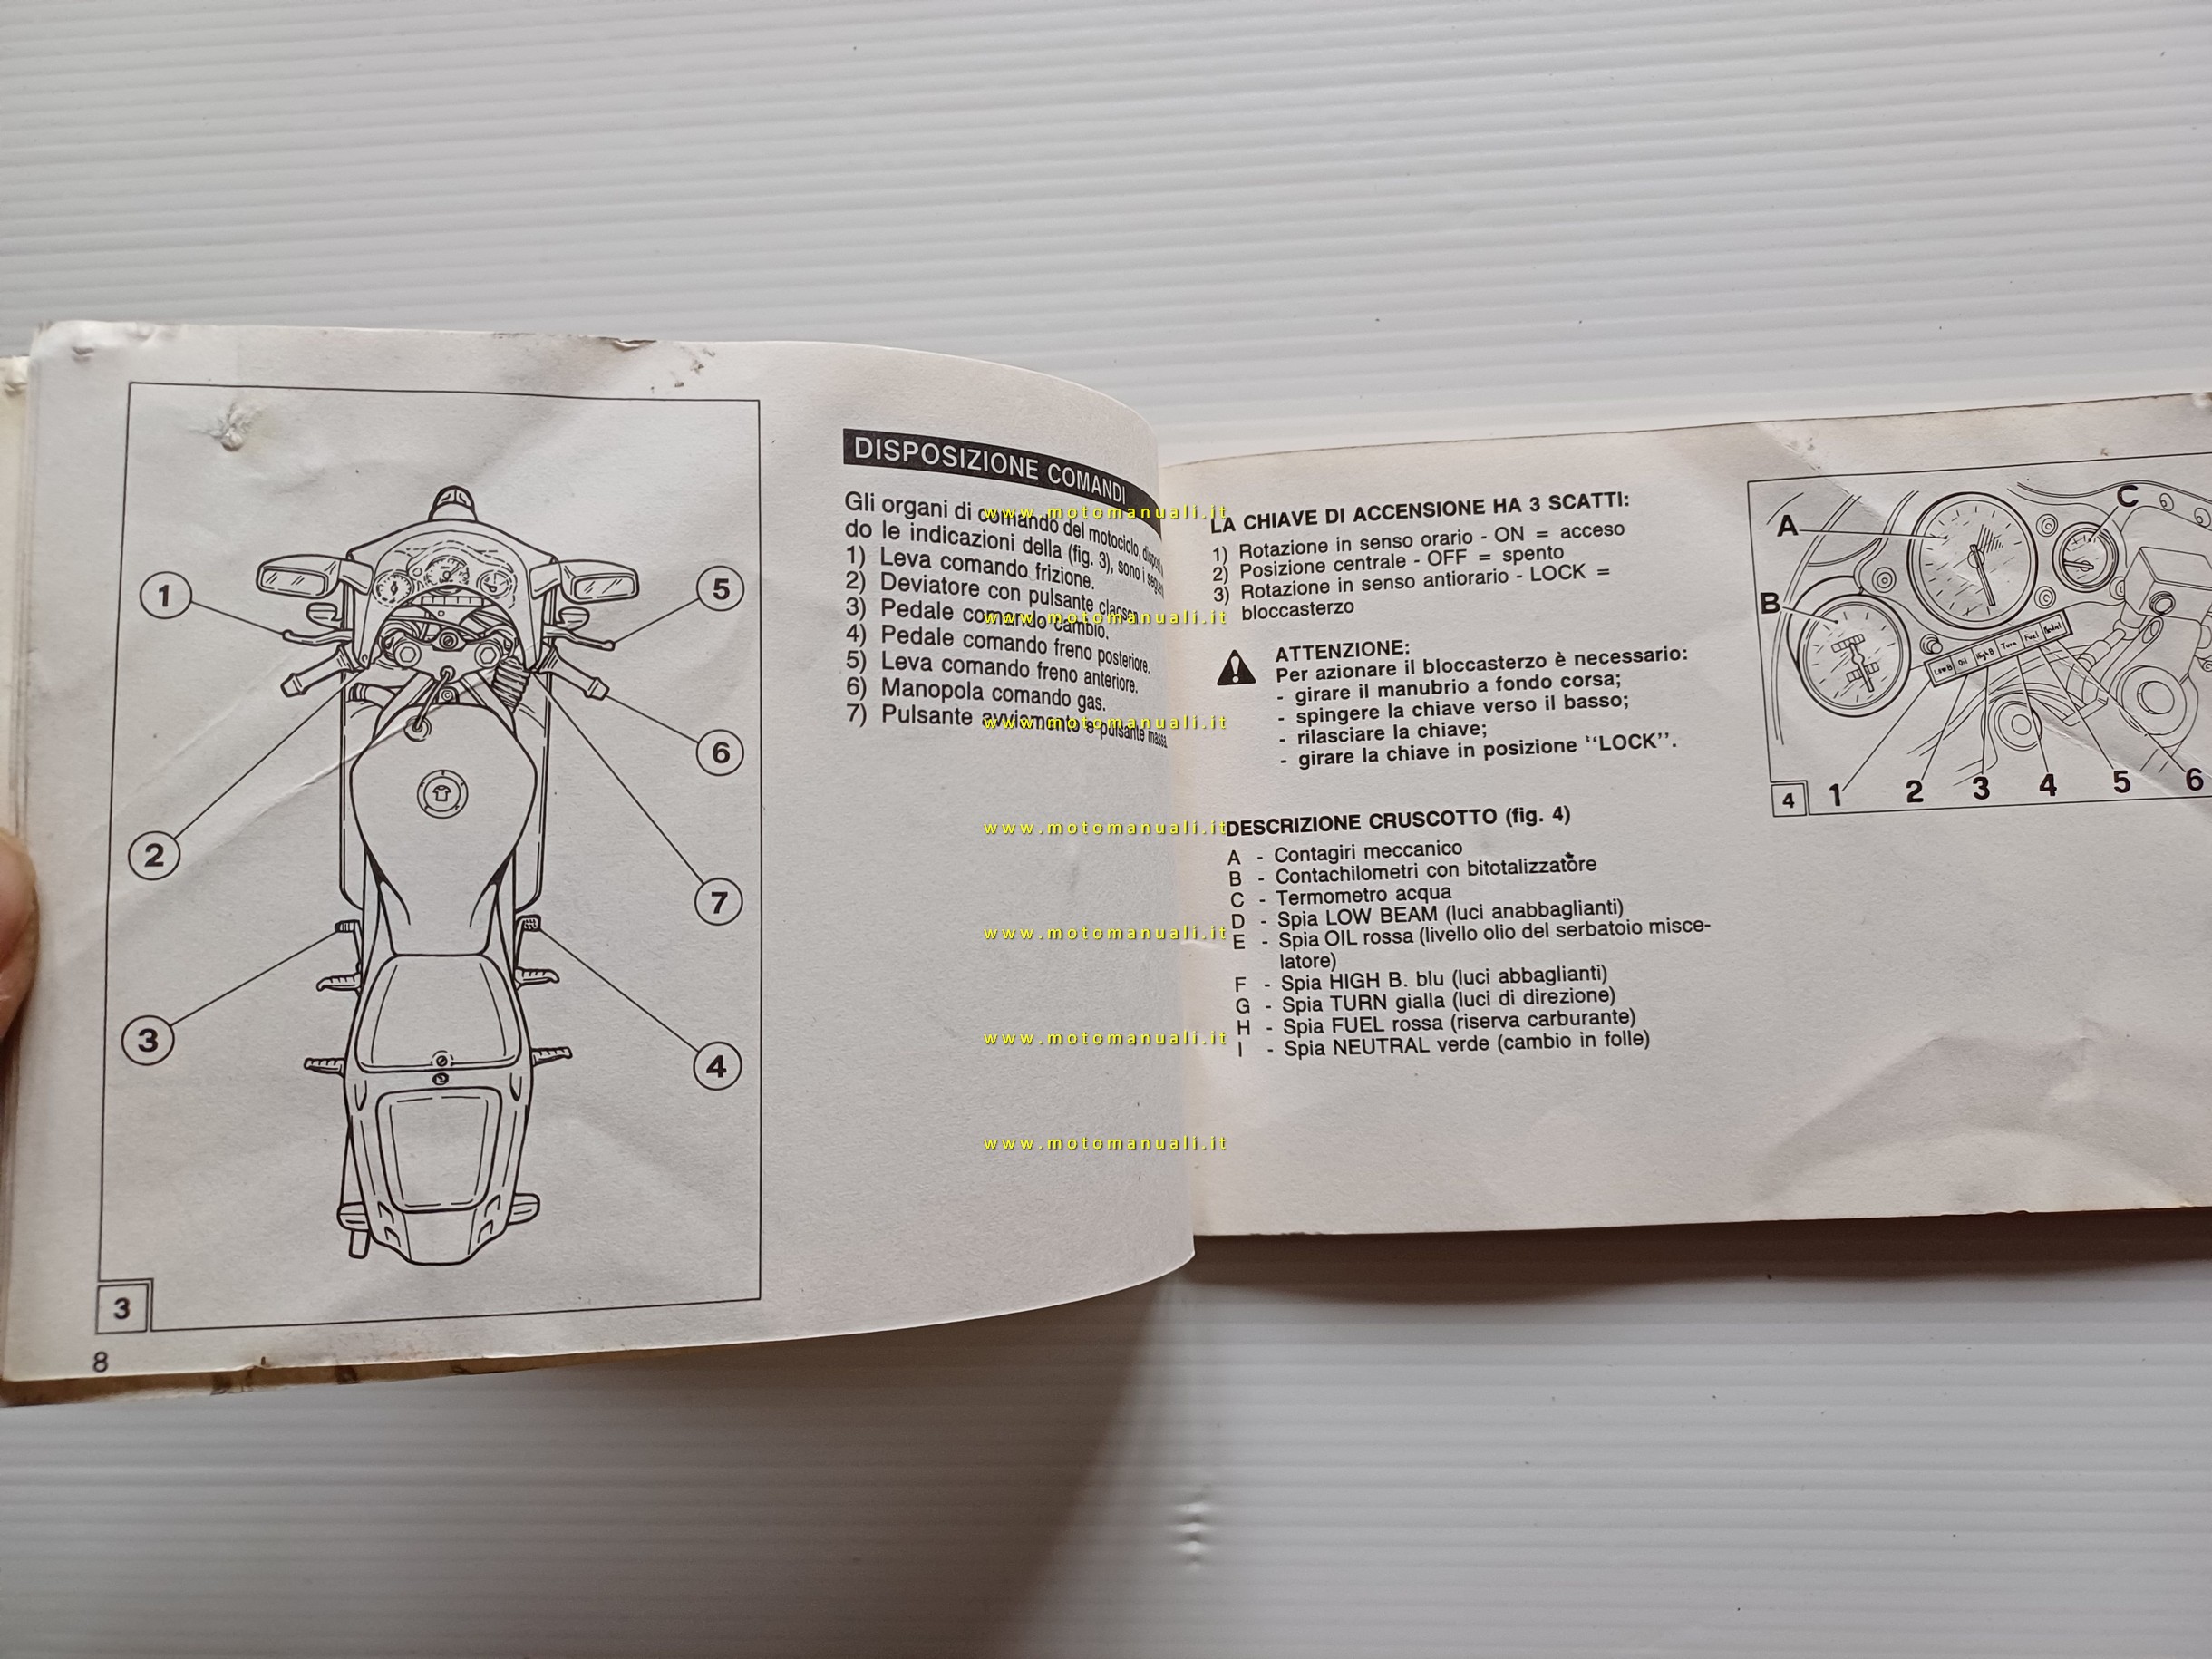 1
2
3
5
6
7
4
3
8
DISPOSIZIONE COMANDI
Gli organi di comando del motociclo,
do le indicazioni della (fig. 3), sono i
1) Leva comando frizione.
2) Deviatore con pulsante clacson.
3) Pedale comando cambio.
4) Pedale comando freno posteriore.
5) Leva comando freno anteriore.
6) Manopola comando gas.
7) Pulsante avviamento e pulsante massa.
www.motomanuali.it
www.motomanuali.it
www.motomanuali.it
www.motomanuali.it
www.motomanuali.it
www.motomanuali.it
www.motomanuali.it
LA CHIAVE DI ACCENSIONE HA 3 SCATTI:
1) Rotazione in senso orario - ON = acceso
2) Posizione centrale - OFF = spento
3) Rotazione in senso antiorario - LOCK =
bloccasterzo
ATTENZIONE:
Per azionare il bloccasterzo è necessario:
- girare il manubrio a fondo corsa;
- spingere la chiave verso il basso;
- rilasciare la chiave;
- girare la chiave in posizione "LOCK".
DESCRIZIONE CRUSCOTTO (fig. 4)
A - Contagiri meccanico
B - Contachilometri con bitotalizzatore
C - Termometro acqua
D - Spia LOW BEAM (luci anabbaglianti)
E - Spia OIL rossa (livello olio del serbatoio misce-
latore)
F - Spia HIGH B. blu (luci abbaglianti)
G - Spia TURN gialla (luci di direzione)
H - Spia FUEL rossa (riserva carburante)
I - Spia NEUTRAL verde (cambio in folle)
A
B
C
Low B Oil High B Turn Fuel
4
1 2 3 4 5 6